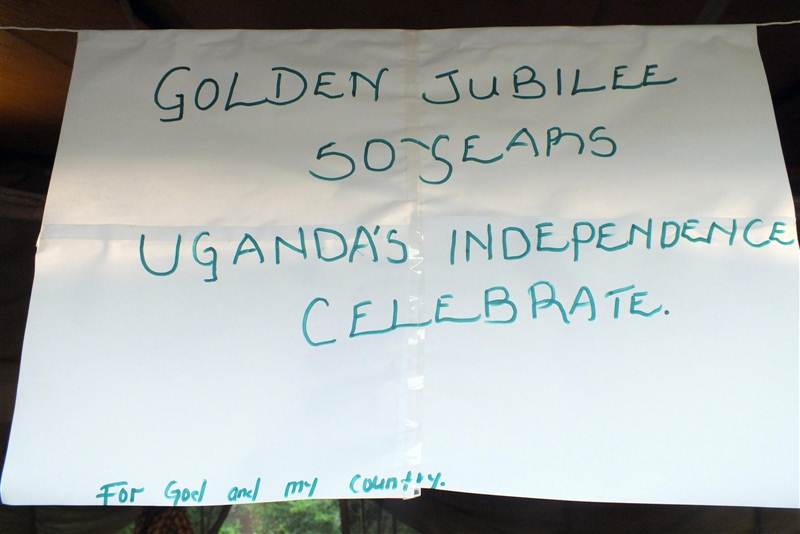 GOLDEN JUBILEE
50 YEARS
UGANDA'S INDEPENDENCE
CELEBRATE.
For God and my country.